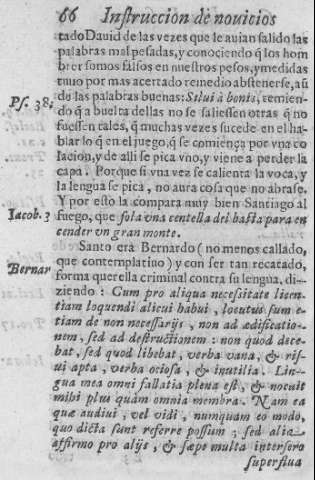 66 Instruccion de nouicios
tado Dauid de las vezes que le auian salido las
palabras mal pesadas, y conociendo q̃ los hom
brer somos falsos en nuestros pesos, y medidas
tuuo por mas acertado remedio abstenerse, aũ
de las palabras buenas: Silui à bonis, temien-
Ps. 38.
do q̃ a buelta dellas no se saliessen otras q̃ no
fuessen tales, q̃ muchas vezes sucede en el ha-
blar lo q̃ en el juego, q̃ se comiença por vna co
lacion, y de alli se pica vno, y viene a perder la
capa. Porque si vna vez se calienta la voca, y
la lengua se pica, no aura cosa que no abrase.
Y por esto la compara muy bien Santiago al
fuego, que sola vna centella del basta para en
Iacob. 3
cender vn gran monte.
Santo era Bernardo (no menos callado,
que contemplatiuo) y con ser tan recatado,
Bernar
forma querella criminal contra su lengua, di-
ziendo: Cum pro aliqua necessitate licen-
tiam loquendi alicui habui, locutus sum e-
tiam de non necessarijs, non ad ædificatio-
nem, sed ad destructionem: non quod dece-
bat, sed quod libebat, verba vana, & ris-
ui apta, verba ociosa, & inutilia. Lin-
gua mea omni fallatia plena est, & nocuit
mihi plus quàm omnia membra. Nam ea
quæ audiui, vel vidi, numquam eo modo,
quo dicta sunt referre possum; sed alia
affirmo pro alijs, & sæpe multa intersero
superflua